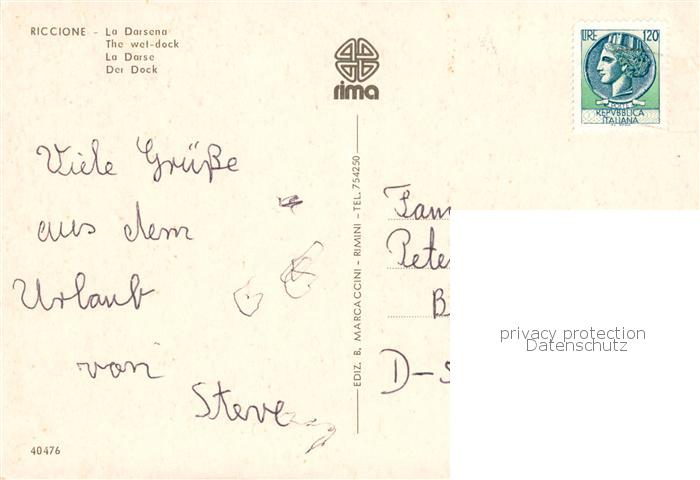 RICCIONE - La Darsena
The wet-dock
La Darse
Der Dock
rima
LIRE 120
POSTE
REPVBBLICA
ITALIANA
Viele Grüße
aus dem
Urlaub
von
Steve
Fam
Pete
B
D-
EDIZ. B. MARCACCINI - RIMINI - TEL. 754250
privacy protection
Datenschutz
40476